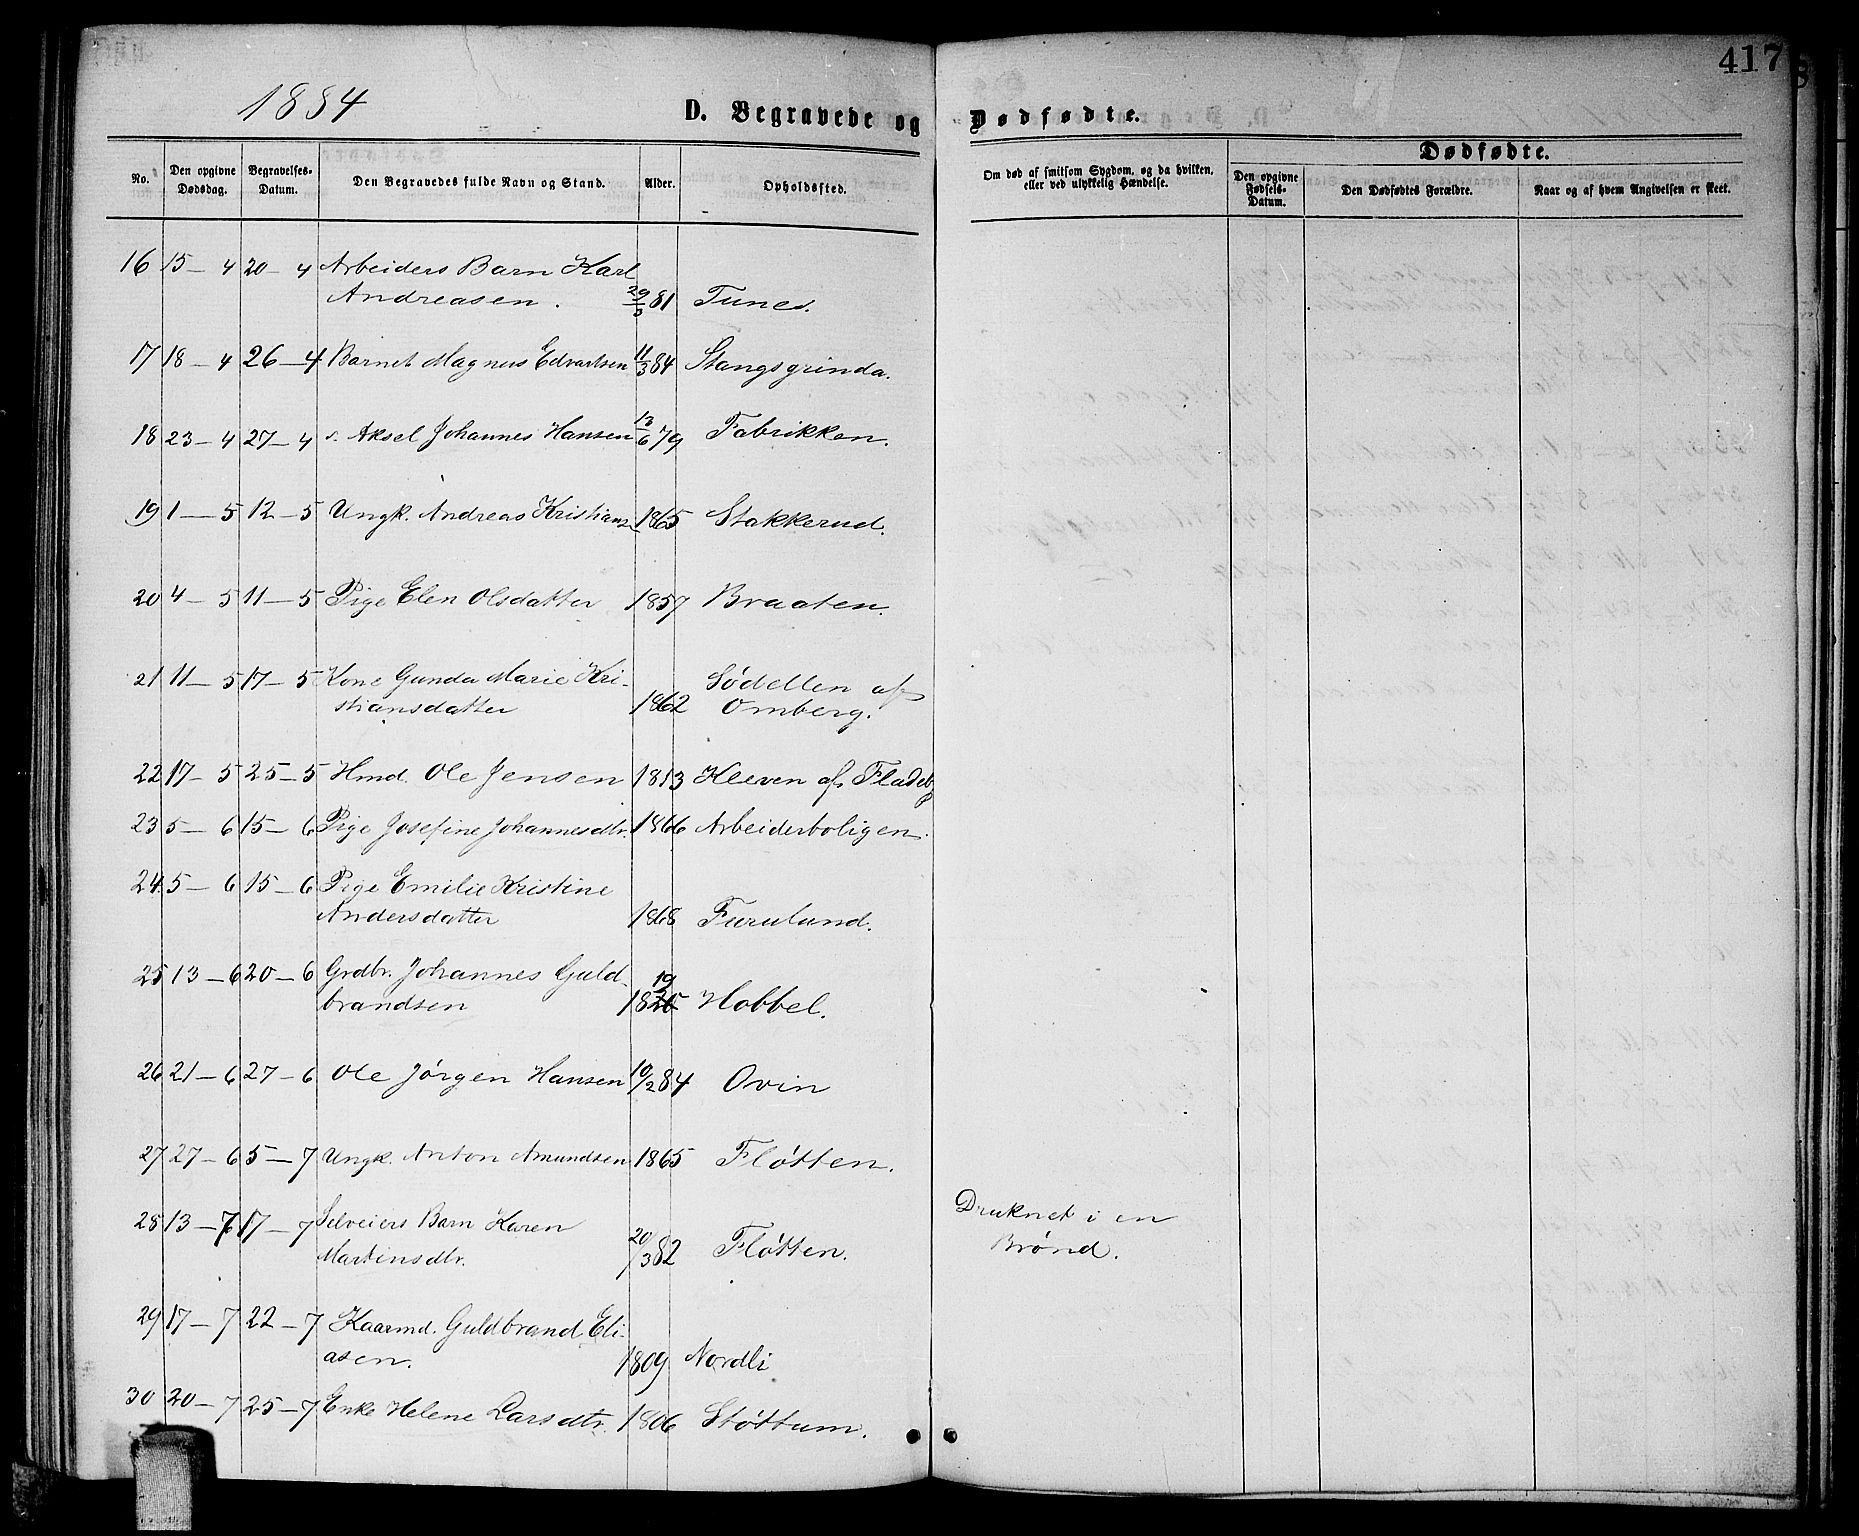 417
1884
D. Begravede og Dødfødte.
No.
Den opgivne Dødsdag.
Begravelses-Datum.
Den Begravedes fulde Navn og Stand.
Alder.
Opholdssted.
Om død af smitsom Sygdom, og da hvilken, eller ved ulykkelig Hændelse.
Dødfødte.
Den opgivne Fødsels-Datum.
Den Dødfødtes Forældre.
Naar og af hvem Angivelsen er skeet.
16 15-4 20-4 Arbeiders Barn Karl
Andreasen. 81 Tunes.
17 18-4 26-4 Barnet Magnus Edvartsen 11/3 84 Stangsgrinda.
18 23-4 27-4 s. Aksel Johannes Hansen 13/6 79 Fabrikken.
19 1-5 12-5 Ungk. Andreas Kristians. 1865 Stakkerud.
20 4-5 11-5 Pige Elen Olsdatter 1857 Braaten.
21 11-5 17-5 Kone Gunda Marie Kri-
stiansdatter 1862 Sødellen af
Omberg.
22 17-5 25-5 Hmd. Ole Jensen 1813 Kleven af Fladeby
23 5-6 15-6 Pige Josefine Johannesdtr. 1866 Arbeiderboligen.
24 5-6 15-6 Pige Emilie Kristine
Andersdatter 1868 Furulund.
25 13-6 20-6 Grdbr. Johannes Guld-
brandsen 1819 Hobbel.
26 21-6 27-6 Ole Jørgen Hansen 10/2 84 Ovin
27 27-6 5-7 Ungk. Anton Amundsen 1865 Fløtten.
28 13-7 17-7 Selveiers Barn Karen
Martinsdtr. 20/3 82 Fløtten. Druknet i en
Brønd.
29 17-7 22-7 Kaarmd. Guldbrand Eli-
asen. 1809 Nordli
30 20-7 25-7 Enke Helene Larsdtr. 1806 Støttum.